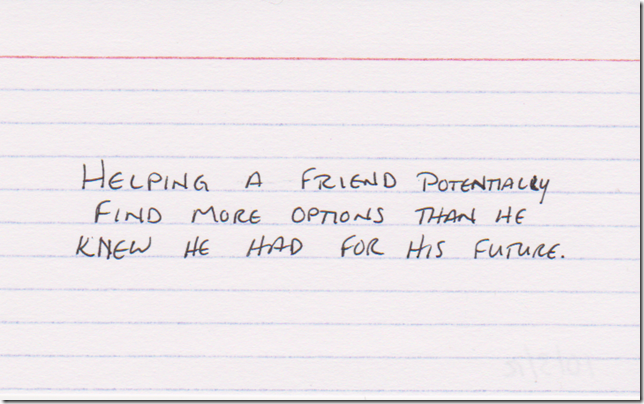 HELPING A FRIEND POTENTIALLY
FIND MORE OPTIONS THAN HE
KNEW HE HAD FOR HIS FUTURE.